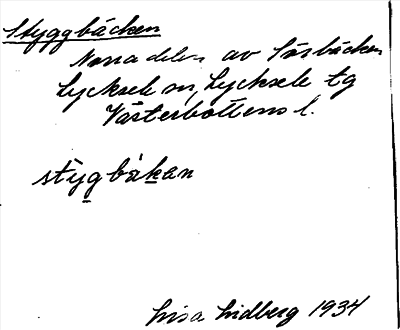 Styggbäcken
Norra delen av Låsbäcken
Lycksele sn, Lycksele tg
Västerbottens l.
stygbäkan
Lisa Lidberg 1934